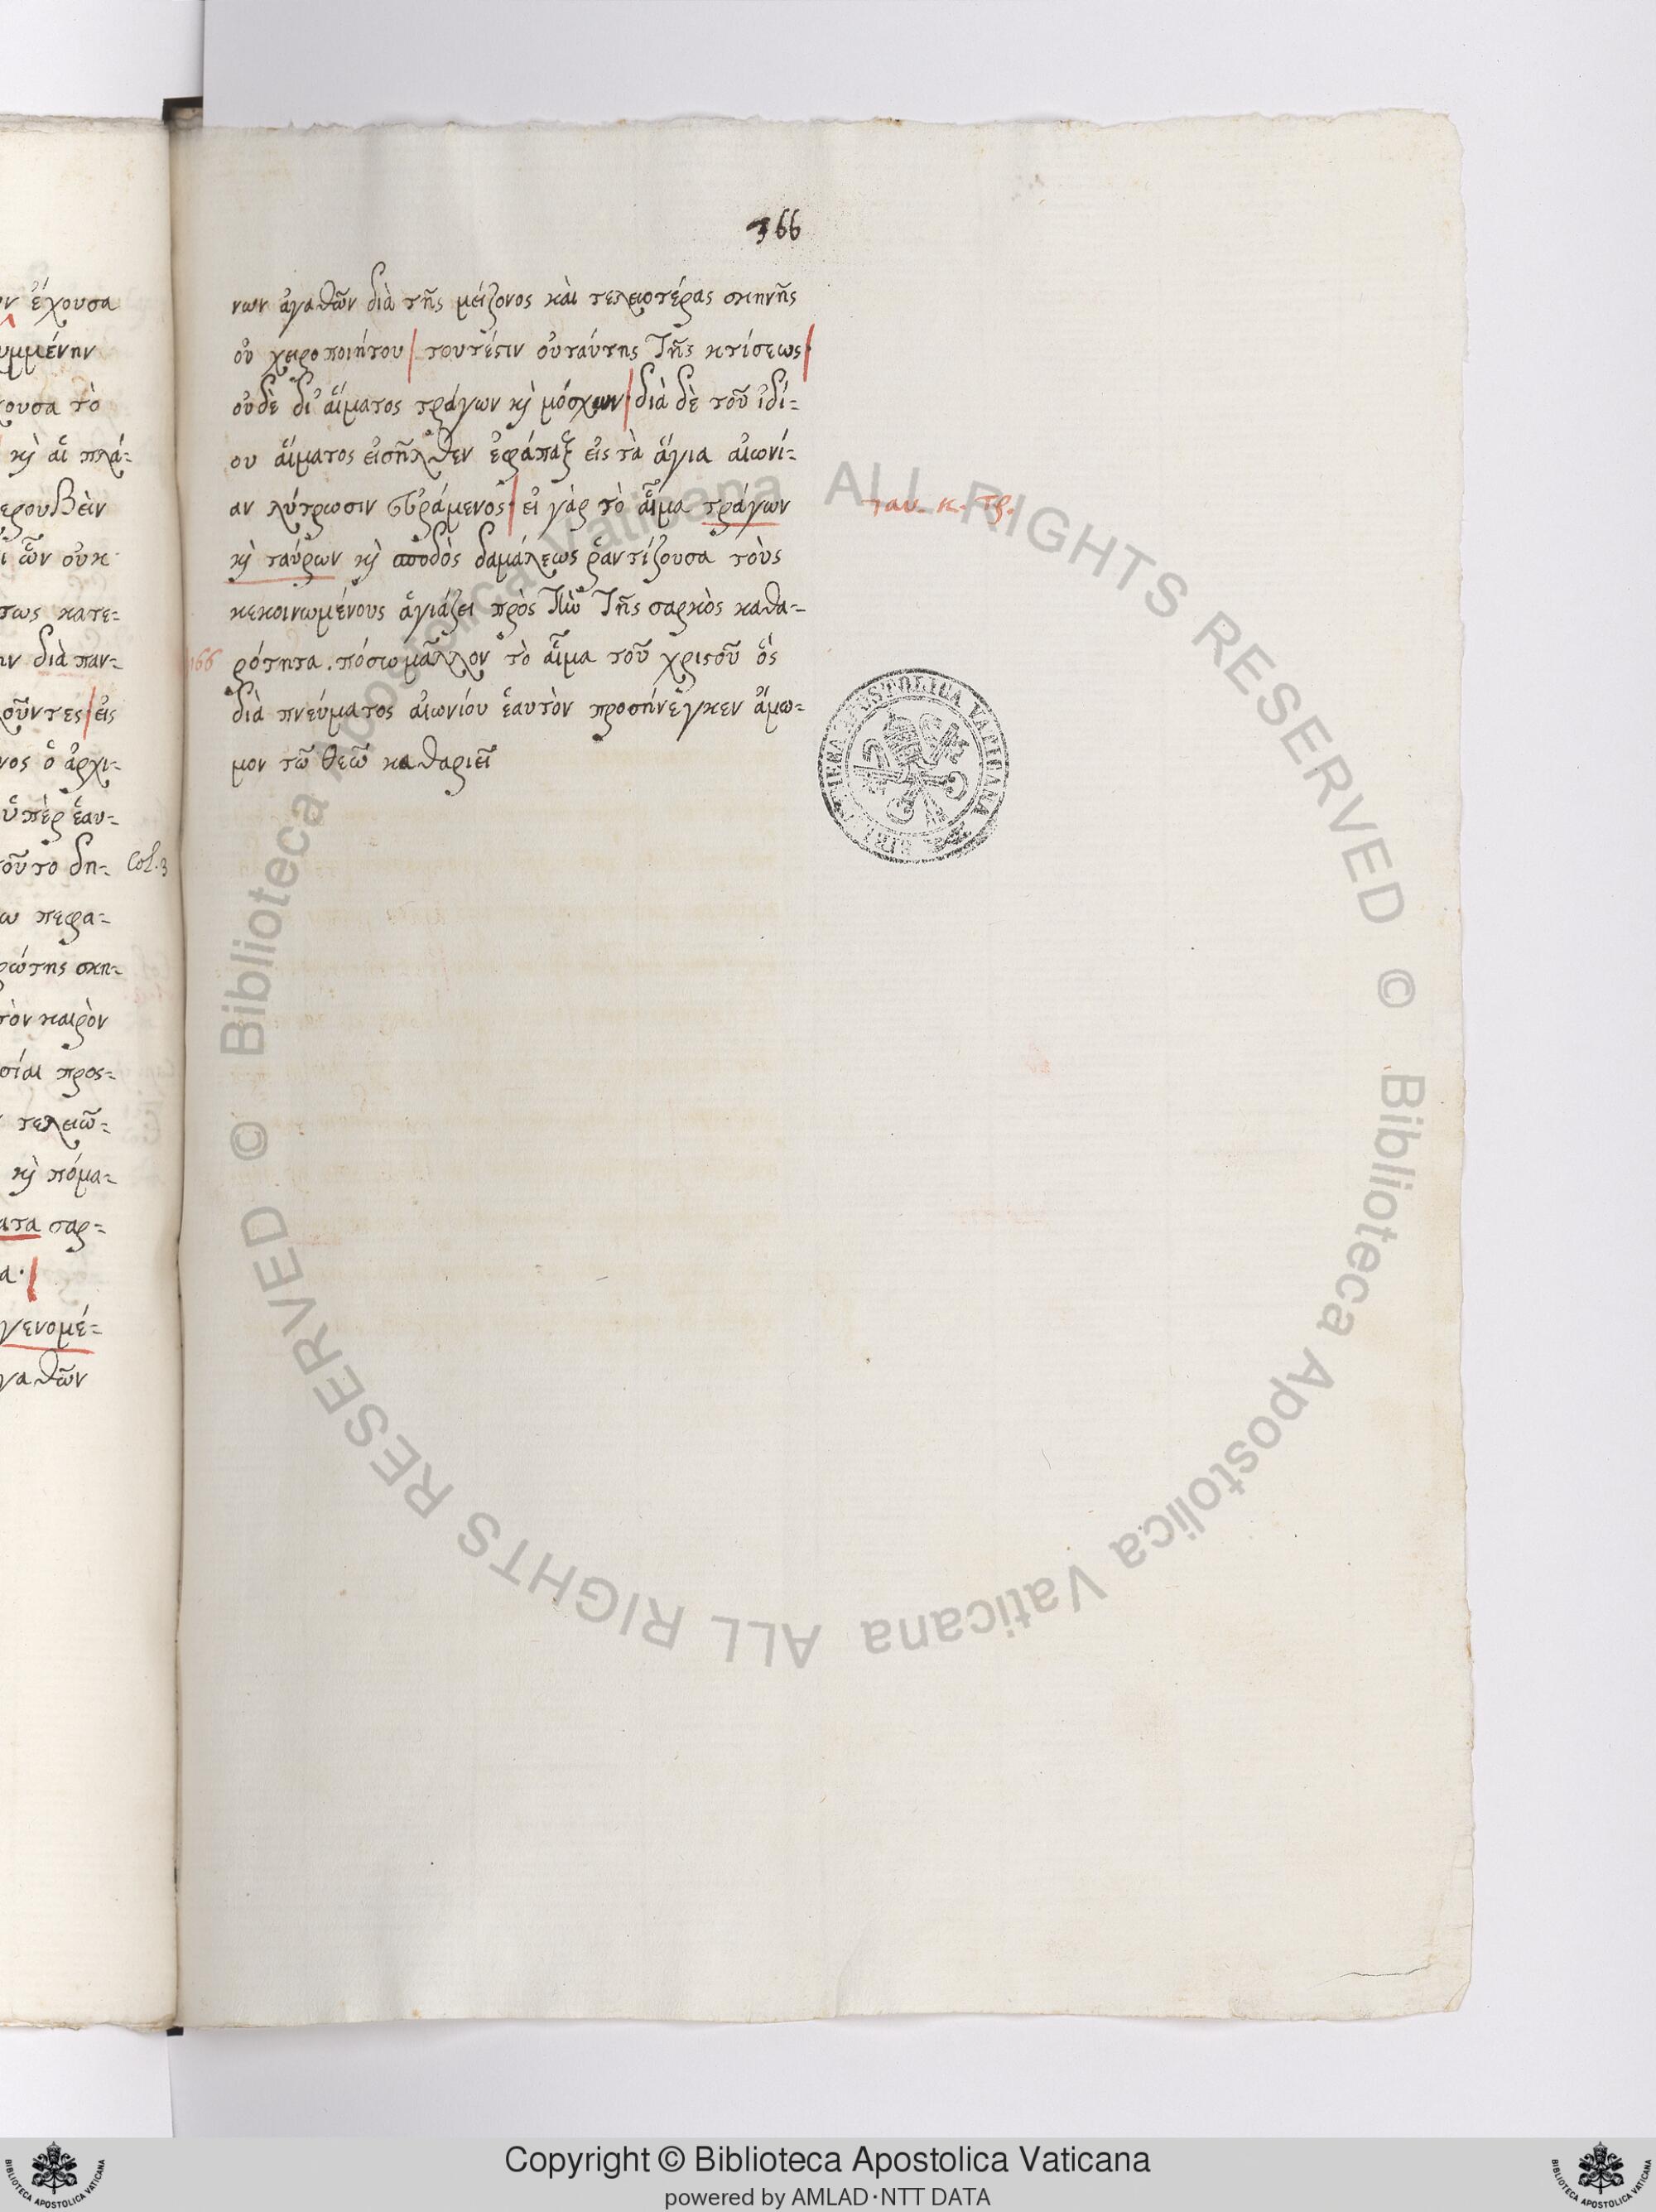 366
νων ἀγαθῶν διὰ τῆς μείζονος καὶ τελειοτέρας σκηνῆς
οὐ χειροποιήτου τουτέστιν οὐ ταύτης τῆς κτίσεως·
οὐδὲ δι' αἵματος τράγων κ̀ μόσχων· διὰ δὲ τοῦ ἰδί-
ου αἵματος εἰσῆλθεν ἐφάπαξ εἰς τὰ ἅγια αἰωνί-
αν λύτρωσιν εὑράμενος· εἰ γὰρ τὸ αἷμα τράγων
ταυ. κ. τρ.
κ̀ ταύρων κ̀ σποδὸς δαμάλεως ῥαντίζουσα τοὺς
κεκοινωμένους ἁγιάζει πρὸς τὴν τῆς σαρκὸς καθα-
166
ρότητα. πόσω μᾶλλον τὸ αἷμα τοῦ χριστοῦ ὅς
διὰ πνεύματος αἰωνίου ἑαυτὸν προσήνεγκεν ἄμω-
μον τῶ θεῶ καθαριεῖ
ἔχουσα
υμμένην
ουσα τὸ
κ̀ αἱ πλά-
ερουβεὶν
ὧν οὐκ
τως κατε-
ν διὰ παν-
οῦντες· εἰς
νος ὁ ἀρχι-
ὑπὲρ ἑαυ-
τοῦτο δη-
Col. 3
ω πεφα-
ρώτης σκη-
τὸν καιρὸν
σίαι προς-
τελειῶ-
κ̀ πόμα-
ατα σαρ-
α·
γενομέ-
γαθῶν
Biblioteca Apostolica Vaticana ALL RIGHTS RESERVED ©
Biblioteca Apostolica Vaticana ALL RIGHTS RESERVED ©
Copyright © Biblioteca Apostolica Vaticana
powered by AMLAD·NTT DATA
BIBLIOTECA APOSTOLICA VATICANA
BIBLIOTECA APOSTOLICA VATICANA